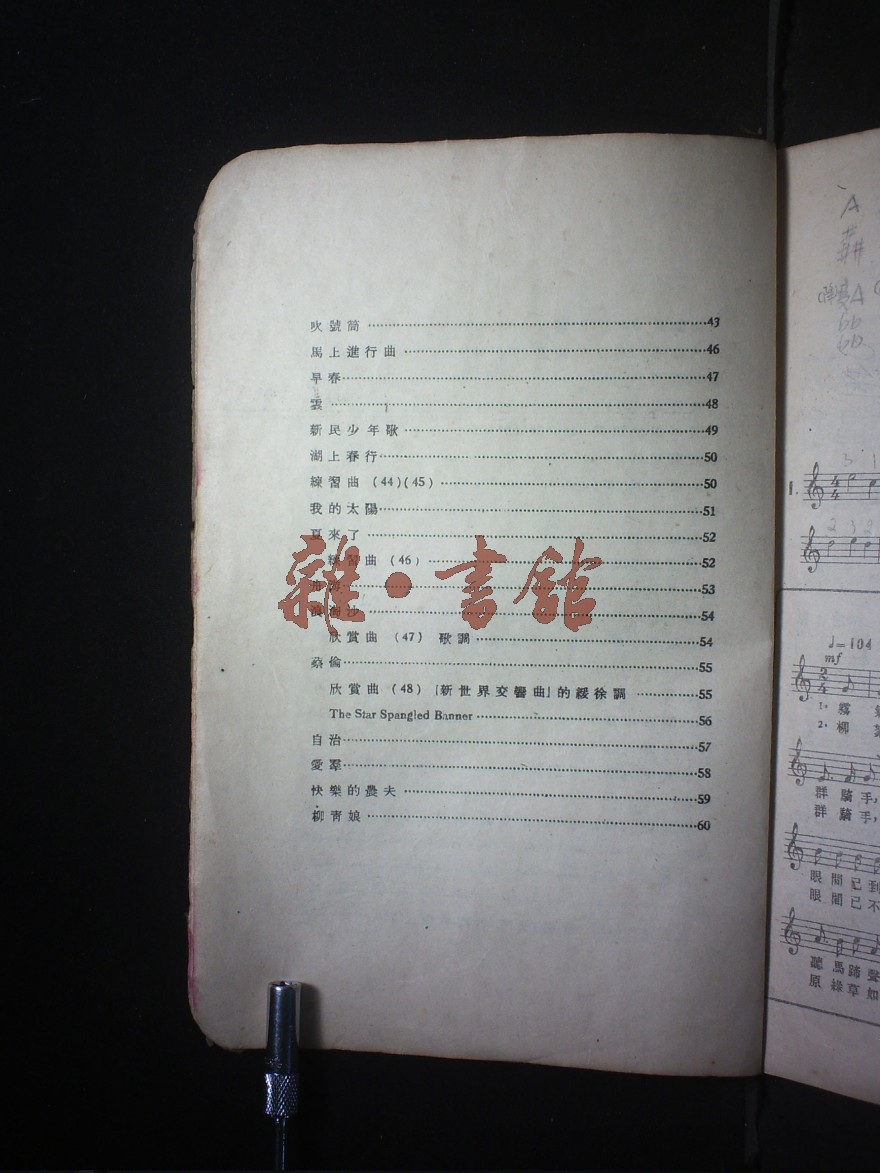 吹號筒 43
馬上進行曲 46
早春 47
雲 48
新民少年歌 49
湖上春行 50
練習曲 (44)(45) 50
我的太陽 51
夏來了 52
練習曲 (46) 52
53
浪淘沙 54
欣賞曲 (47) 歌調 54
蔡倫 55
欣賞曲 (48) 「新世界交響曲」的緩徐調 55
The Star Spangled Banner 56
自治 57
愛羣 58
快樂的農夫 59
柳青娘 60
雜·書館
A
1.
♩=104
mf
2/4
1.
2. 柳
群騎手,
群騎手,
眼間已到
眼間已不
聽馬蹄聲
原綠草如